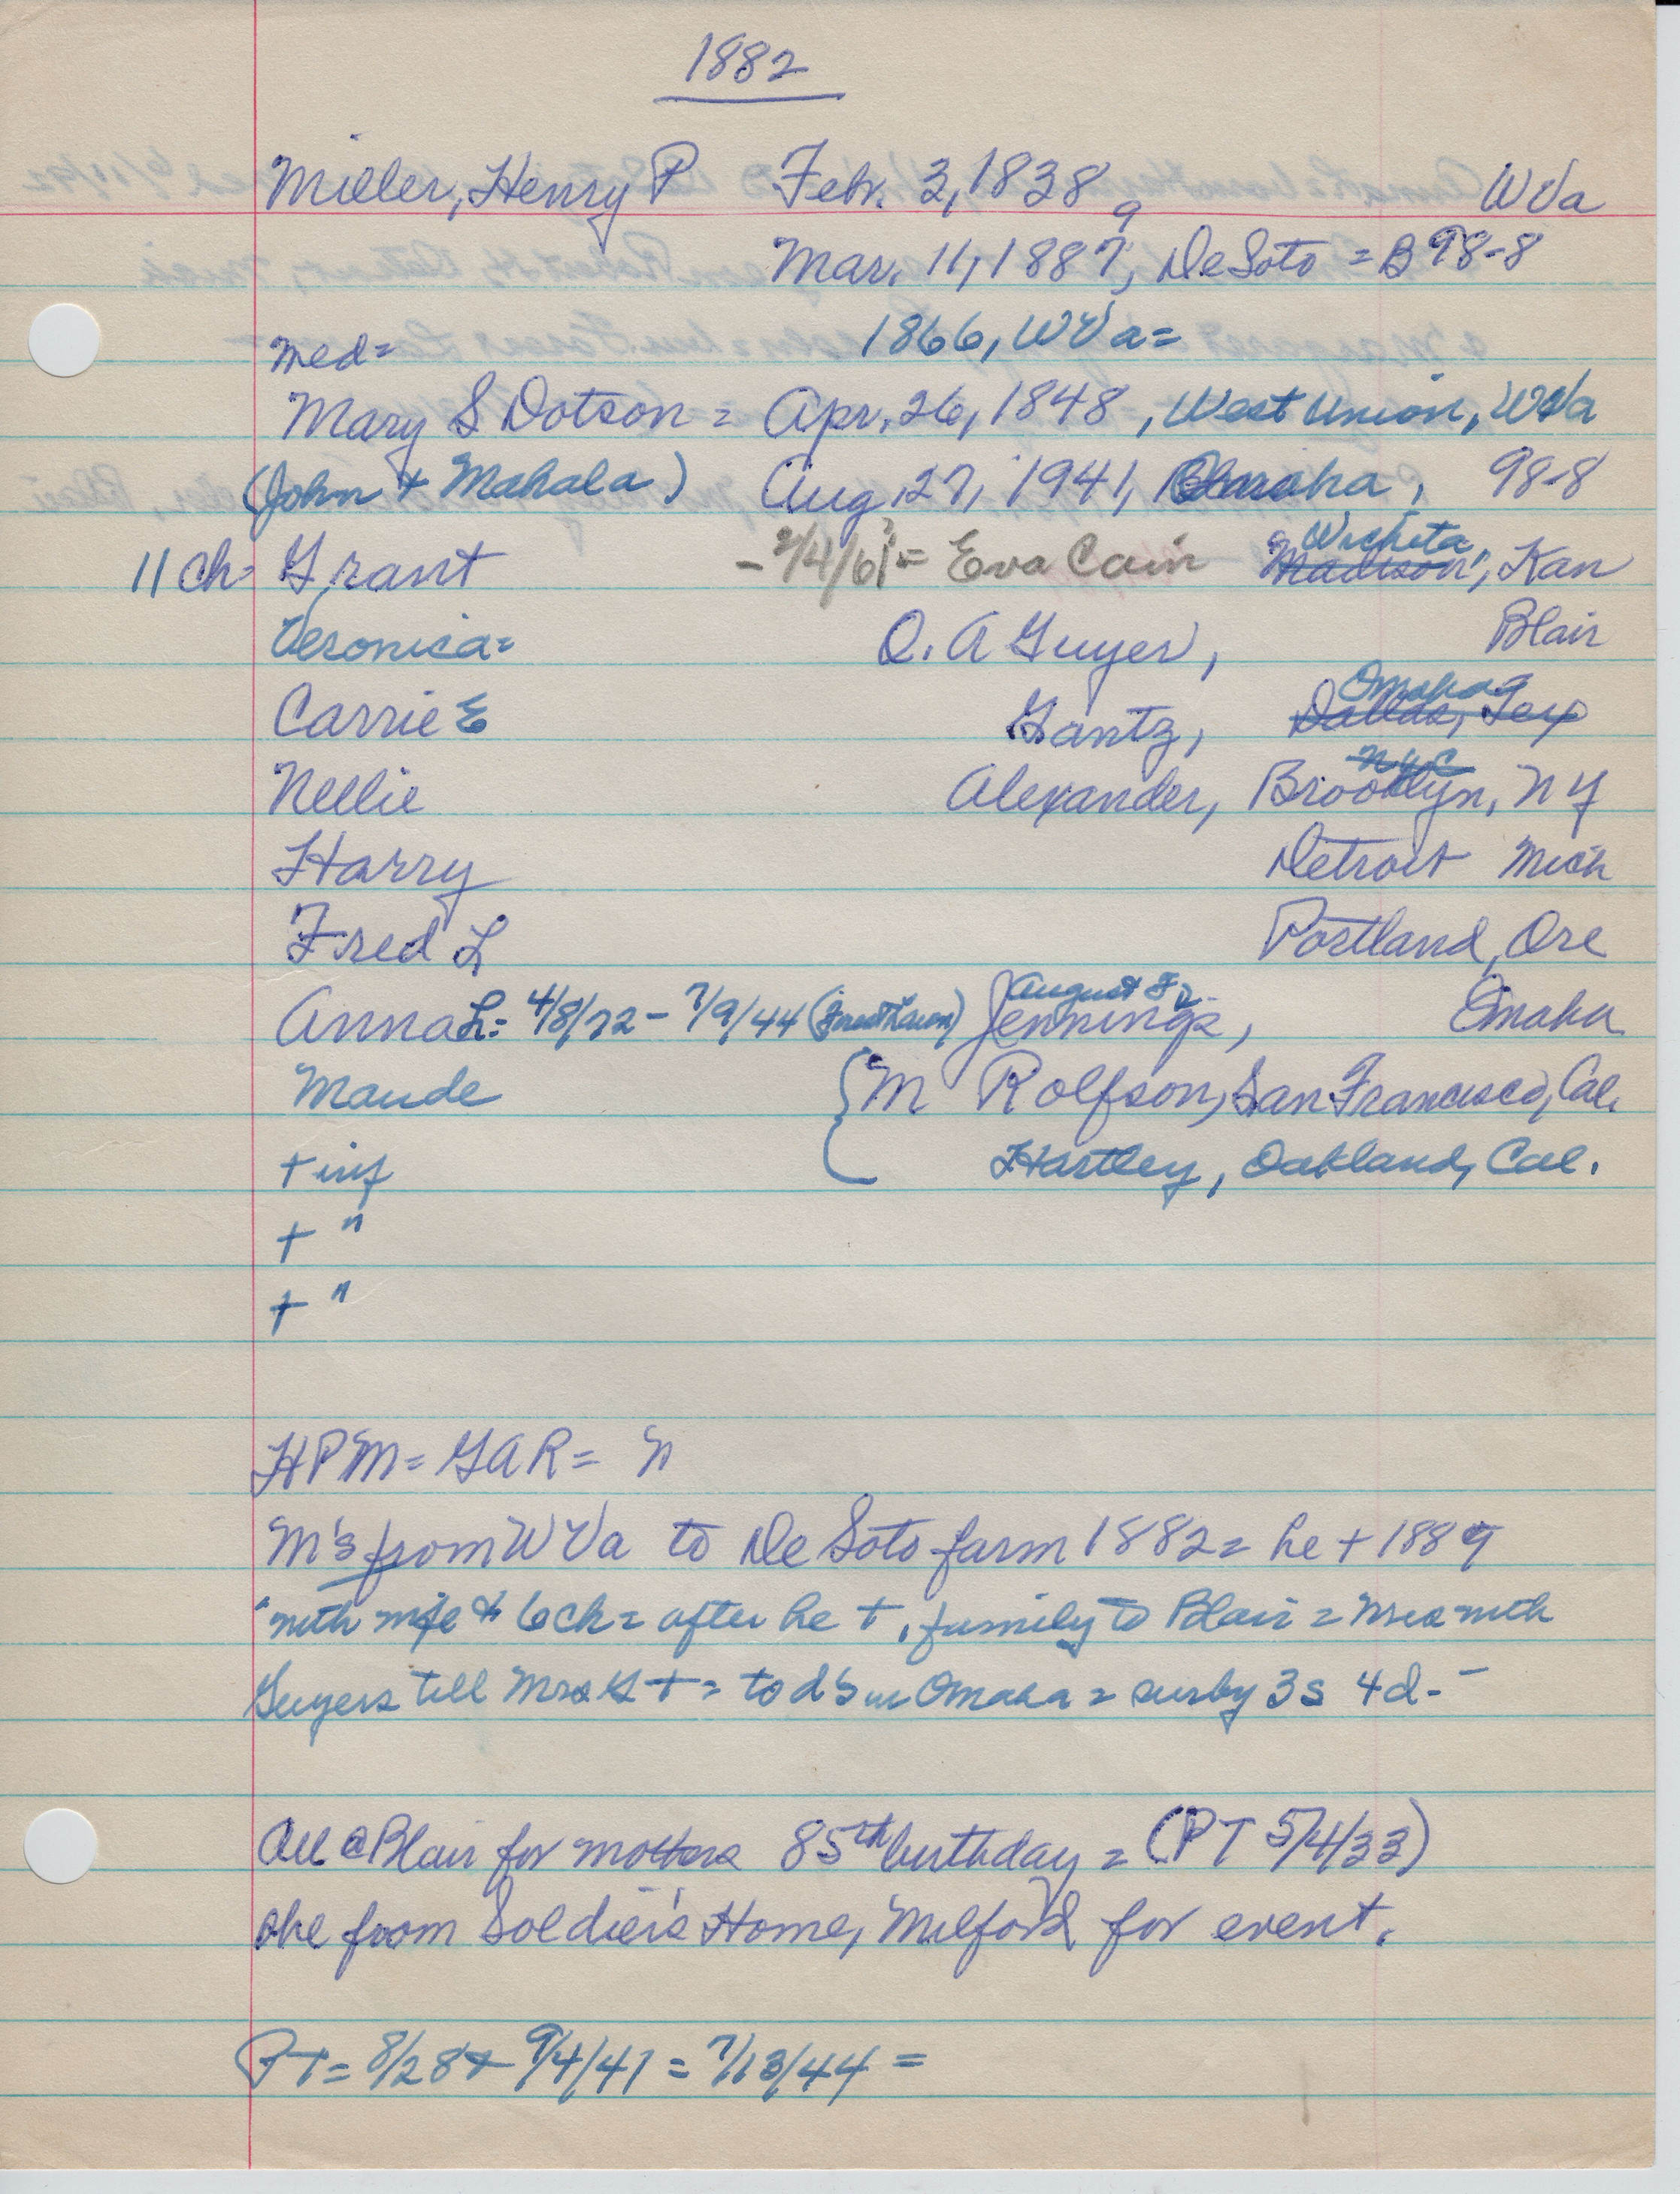 1882
Miller, Henry P Feb. 3, 1838, WVa
9
Mar. 11, 1887, De Soto = B 98-8
med= 1866, WVa=
Mary S Dotson = Apr. 26, 1848, West Union, WVa
(John + Mahala) Aug. 27, 1941, Omaha, 98-8
Wichita,
11 ch= Grant - 2/4/61= Eva Cain Madison, Kan
Veronica= O. A Guyer, Blair
Omaha
Carrie E Gantz, Dallas, Tex
NYC
Nellie Alexander, Brooklyn, NY
Harry Detroit Mich
Fred L Portland, Ore
August F
Anna L= 4/8/72 - 7/9/44 (Forest Lawn) Jennings, Omaha
Maude { M Rolfson, San Francisco, Cal.
+ inf Hartley, Oakland, Cal.
+ "
+ "
HPM = GAR = N
M's from WVa to De Soto farm 1882 = he + 1889
with wife & 6 ch = after he +, family to Blair = Mrs M with
Guyers till Mrs G + = to d's in Omaha = surby 3s 4d -
All @ Blair for mothers 85th birthday = (PT 5/4/33)
she from Soldier's Home, Milford for event.
PT = 8/28 + 9/4/41 = 7/13/44 =